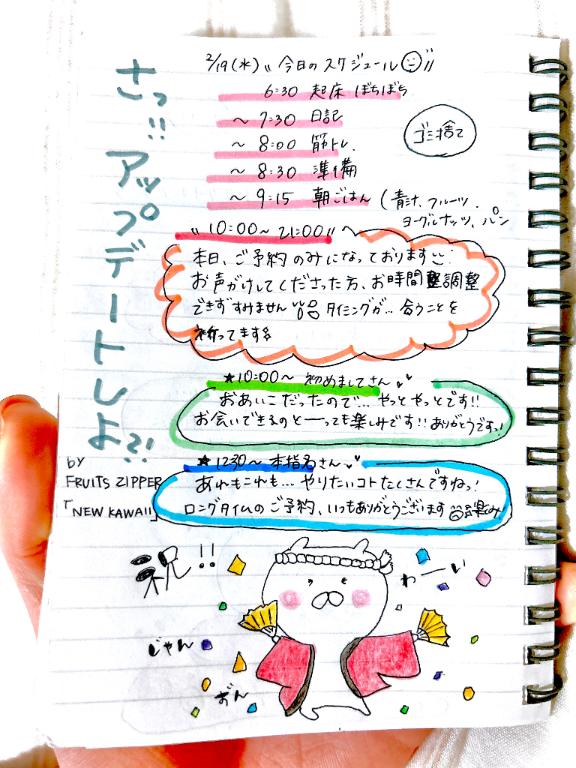 2/19(水)〃今日のスケジュール〃
6:30 起床 ぼちぼち
〜7:30 日記
〜8:00 筋トレ
〜8:30 準備
〜9:15 朝ごはん (青汁、フルーツ、
ヨーグルナッツ、パン
ゴミ捨て
さっ!! アップデートしよ?!
by
FRUITS ZIPPER
「NEW KAWAII」
〃10:00〜21:00〃
本日、ご予約のみになっております
お声がけしてくださった方、お時間調整
できずすみません タイミングが…合うことを
祈ってます
★10:00〜 初めましてさん
おあいこだったので… やっとやっとです!!
お会いできるのと一っても楽しみです!!ありがとうです!
★12:30〜本指名さん
あれもこれも… やりたいコトたくさんですねっ!
ロングタイムのご予約、いつもありがとうございます 楽しみ
祝!!
わーい
じゃん
おん